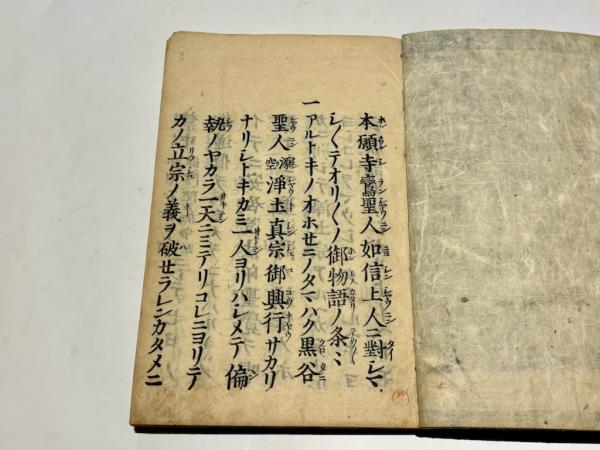 本願寺鸞聖人如信上人ニ對シマ
シ〱テオリ〱ノ御物語ノ条〻
一アルトキノオホセニノタマハク黒谷
聖人源空浄土真宗御興行サカリ
ナリシトキカミ一人ヨリハシメテ偏
執ノヤカラ一天ニミテリコレニヨリテ
カノ立宗ノ義ヲ破セラレンカタメニ